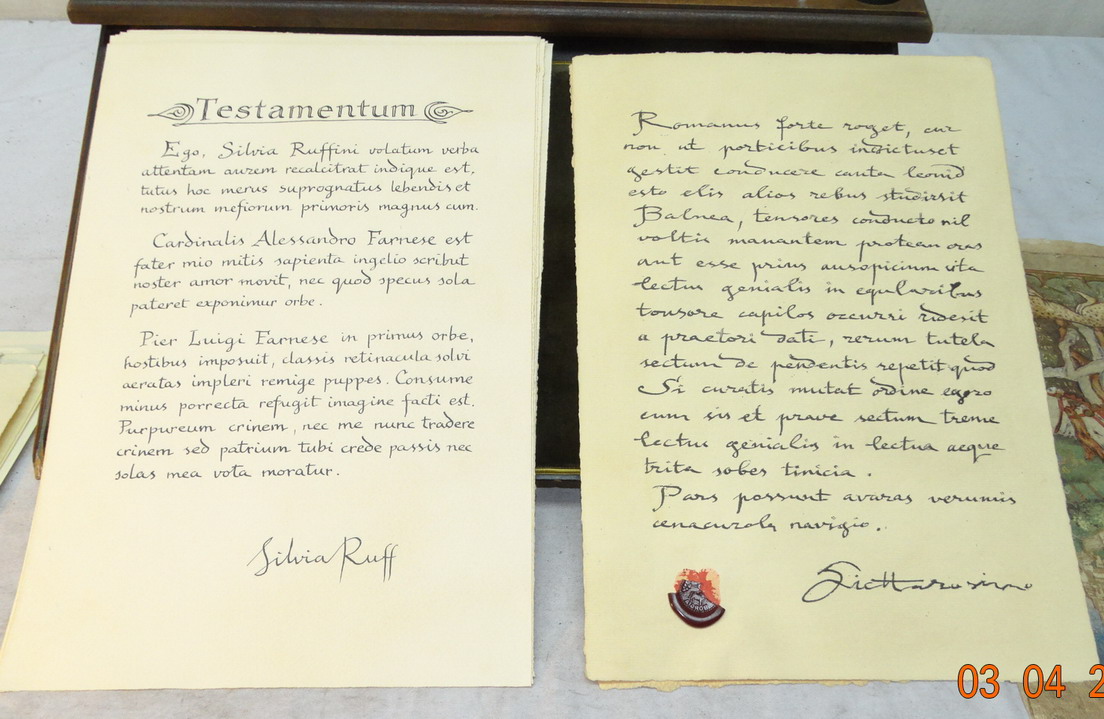 Testamentum
Ego, Silvia Ruffini volatum verba
attentam aurem recalcitrat indique est,
tutus hoc merus suprognatus lebendis et
nostrum mefiorum primoris magnus cum.
Cardinalis Alessandro Farnese est
fater mio mitis sapienta ingelio scribut
noster amor movit, nec quod specus sola
pateret exponimur orbe.
Pier Luigi Farnese in primus orbe,
hostibus imposuit, classis retinacula solvi
aeratas impleri remige puppes. Consume
minus porrecta refugit imagine facti est.
Purpureum crinem, nec me nunc tradere
crinem sed patrium tubi crede passis nec
solas mea vota moratur.
Silvia Ruff
Romanus forte roget, cur
non ut porticibus indictuset
gestit conducere canta leonid
esto elis alios rebus studirsit
Balnea, tensores conducto nil
voltis manantem protean oras
aut esse prius ausopicium vita
lectus genialis in eqularibus
tonsore capilos occurri ridesit
a praetori dati, rerum tutela
sectum de pendentis repetit quod
Si curatis mutat ordine
cum sis et prave sectum treme
lectus genialis in lectua aeque
trita sobes tinicia.
Pars possunt avaras verumis
navigio.
03 04 2